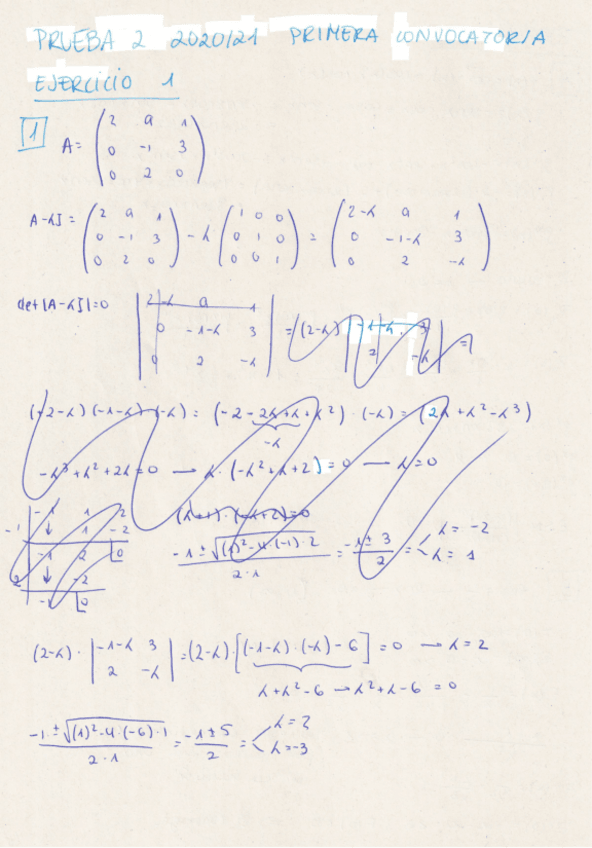 PRUEBA 2 2020/21 PRIMERA CONVOCATORIA
EJERCICIO 1
1 A = (2 a 1
0 -1 3
0 2 0)
A-λI = (2 a 1 / 0 -1 3 / 0 2 0) - λ (1 0 0 / 0 1 0 / 0 0 1) = (2-λ a 1 / 0 -1-λ 3 / 0 2 -λ)
det|A-λI|=0 |2-λ a 1 / 0 -1-λ 3 / 0 2 -λ| = (2-λ) |-1-λ 3 / 2 -λ| =
(-2-λ)(-1-λ)(-λ) = (-2-2λ+λ+λ²)·(-λ) = (2λ+λ²-λ³)
-λ
-λ³+λ²+2λ=0 → λ·(-λ²+λ+2)=0 — λ=0
(λ+1)·(-λ+2)=0
-1 1 2
-1 1 -2
-1 2 0
2 -2
-1 0
-1±√((1)²-4·(-1)·2) / 2·1 = -1±3 / 2 = λ=-2
λ=1
(2-λ)·|-1-λ 3 / 2 -λ| = (2-λ)·[(-1-λ)·(-λ)-6] = 0 → λ=2
λ+λ²-6 → λ²+λ-6 = 0
-1±√((1)²-4·(-6)·1) / 2·1 = -1±5 / 2 = λ=2
λ=-3